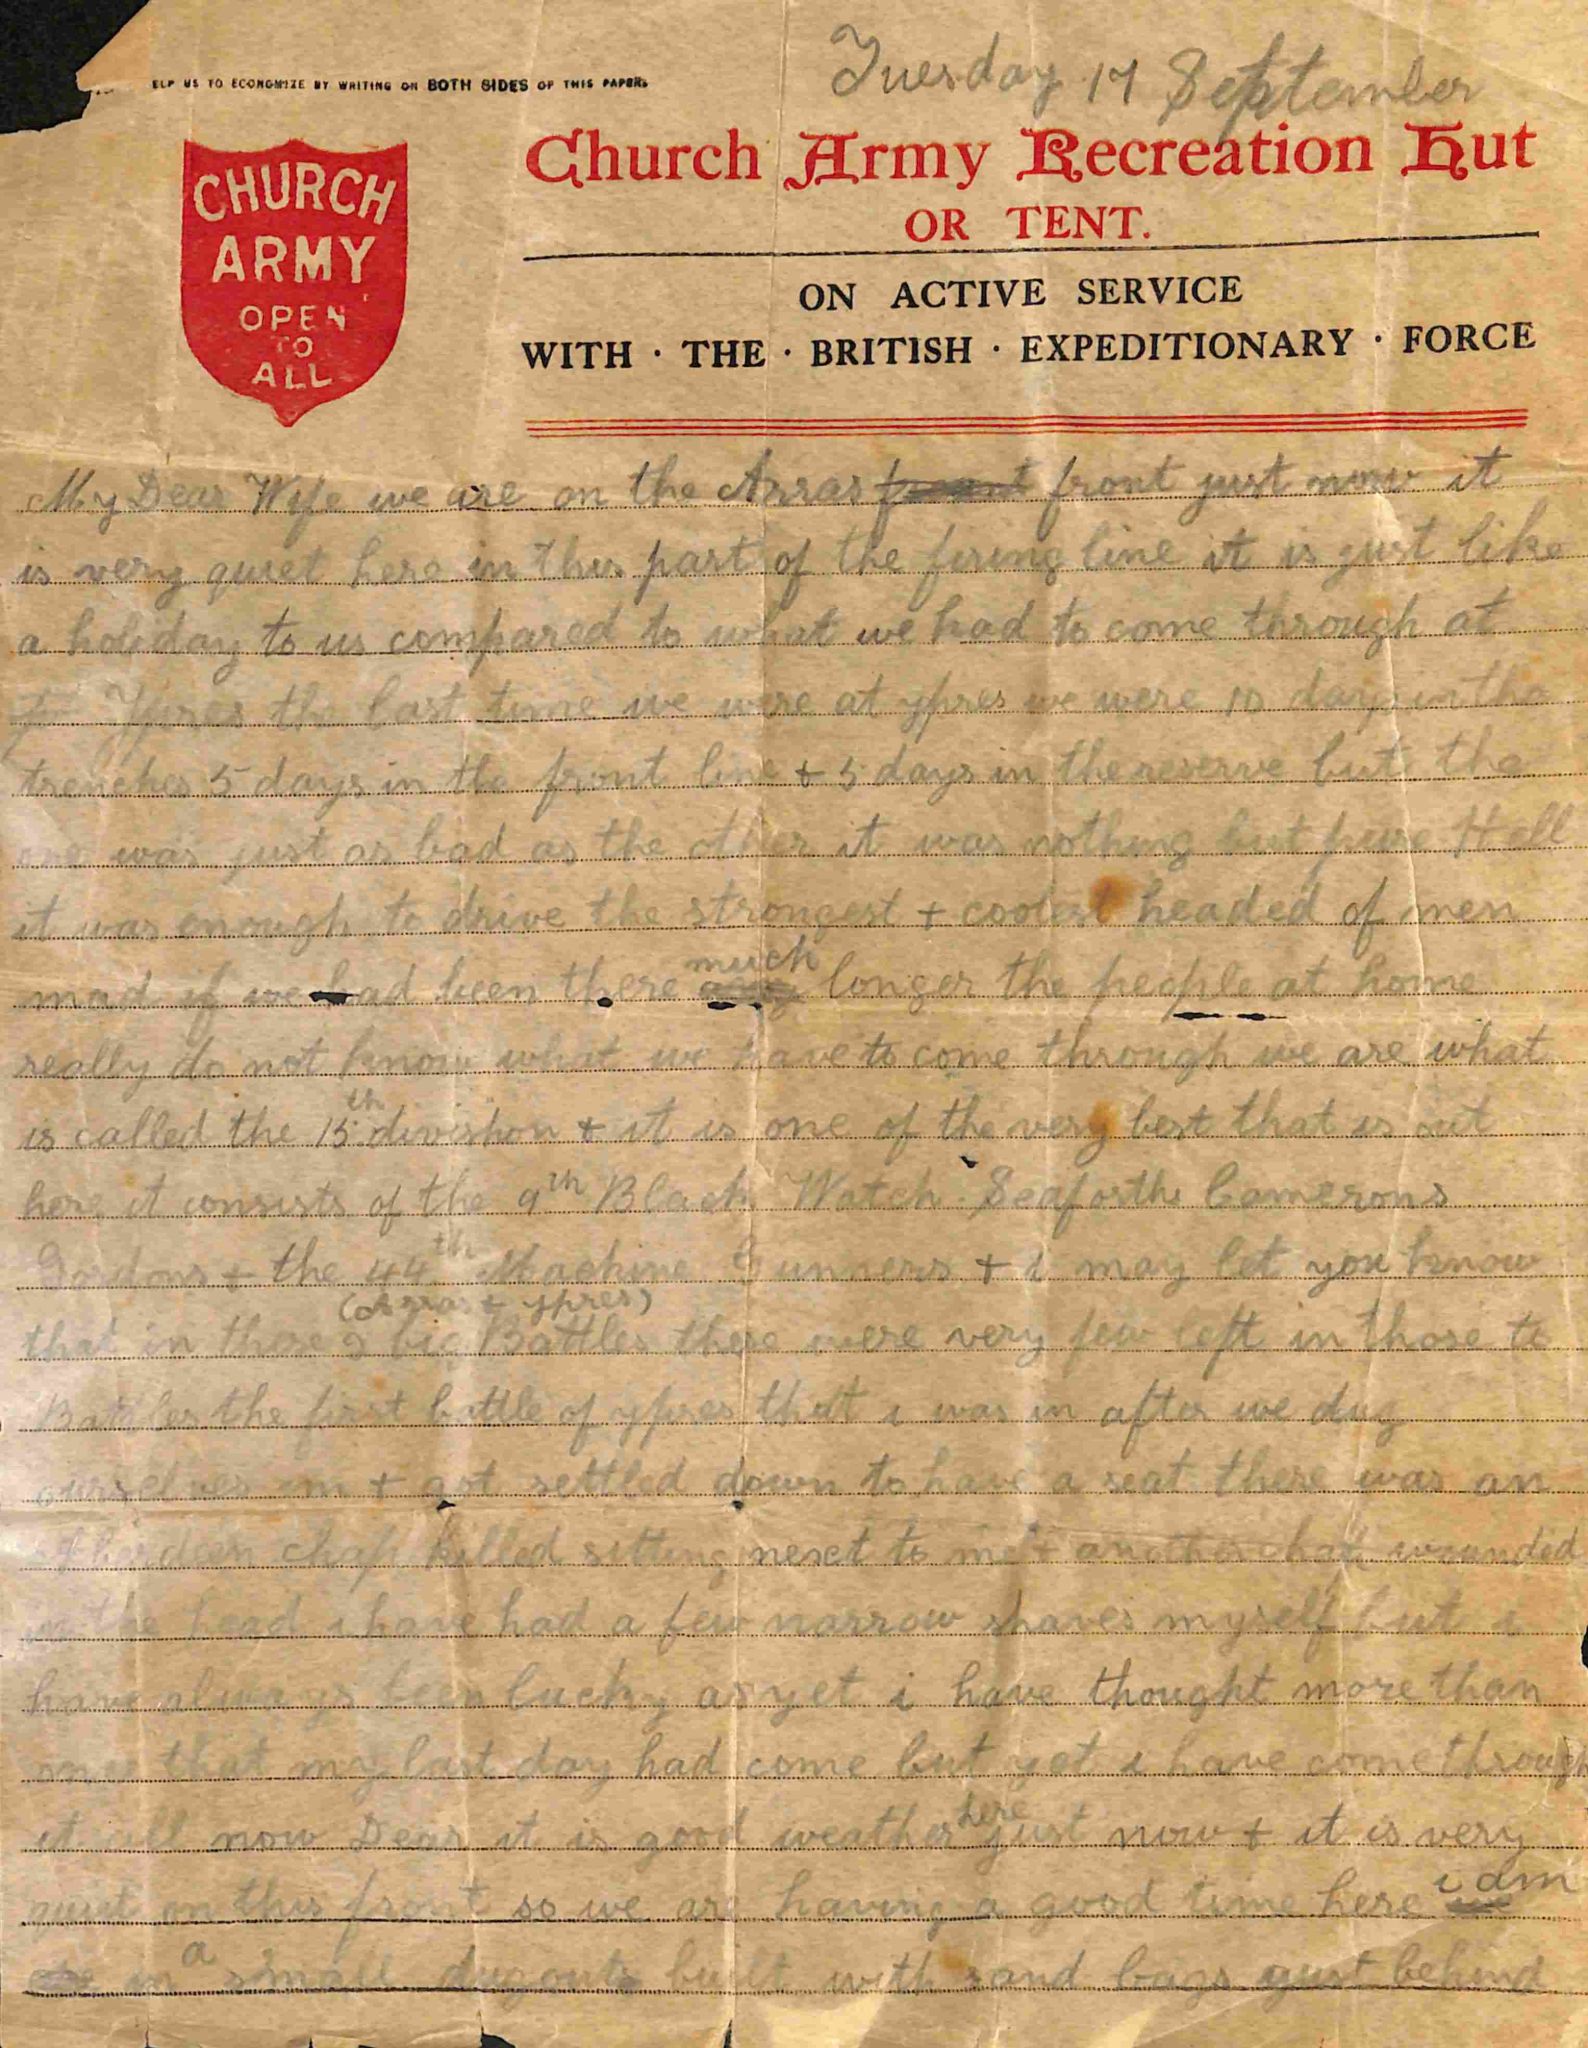 Tuesday 17 September
ELP US TO ECONOMIZE BY WRITING ON BOTH SIDES OF THIS PAPER.
CHURCH
ARMY
OPEN
TO
ALL
Church Army Recreation Hut
OR TENT.
ON ACTIVE SERVICE
WITH · THE · BRITISH · EXPEDITIONARY · FORCE
My Dear Wife we are on the Arras front just now it
is very quiet here in this part of the firing line it is just like
a holiday to us compared to what we had to come through at
Ypres the last time we were at ypres we were 10 days in the
trenches 5 days in the front line + 5 days in the reserve but the
one was just as bad as the other it was nothing but pure Hell
it was enough to drive the strongest + coolest headed of men
mad if we had been there much longer the people at home
really do not know what we have to come through we are what
is called the 15th division + it is one of the very best that is out
here it consists of the 9th Black Watch Seaforths Camerons
Gordons + the 44th Machine Gunners + i may let you know
(Arras + ypres)
that in those 2 big Battles there were very few left in those to
Battles the first battle of ypres that i was in after we dug
ourselves in + got settled down to have a seat there was an
Aberdeen chap killed sitting next to me + another chap wounded
in the head i have had a few narrow shaves myself but i
have always been lucky as yet i have thought more than
once that my last day had come but yet i have come through
it all now Dear it is good weather here just now + it is very
quiet on this front so we are having a good time here i am
in a small dugout built with sand bags just behind